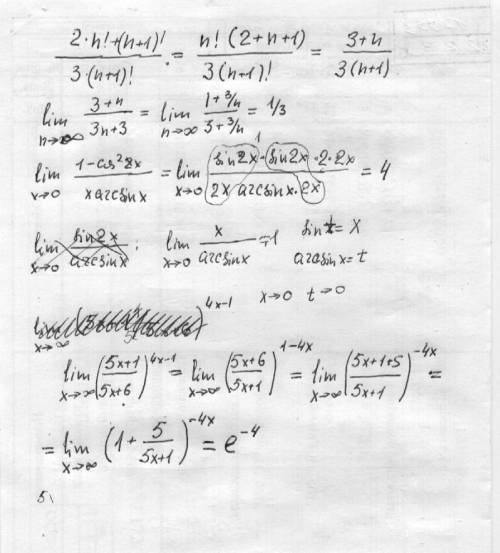 (2·n!+(n+1)!)/(3·(n+1)!) = (n!(2+n+1))/(3(n+1)!) = (3+n)/(3(n+1))
lim n→∞ (3+n)/(3n+3) = lim n→∞ (1+3/n)/(3+3/n) = 1/3
lim x→0 (1-cos²2x)/(x arcsinx) = lim x→0 (sin2x·sin2x·2·2x)/(2x arcsinx·2x) = 4
lim x→0 sin2x/arcsinx ; lim x→0 x/arcsinx = 1 sin t = x
arcsinx = t
x→0 t→0
lim x→∞ 4x-1
lim x→∞ ((5x+1)/(5x+6))^(4x-1) = lim x→∞ ((5x+6)/(5x+1))^(1-4x) = lim x→∞ ((5x+1+5)/(5x+1))^(-4x) =
= lim x→∞ (1+5/(5x+1))^(-4x) = e^(-4)
5\